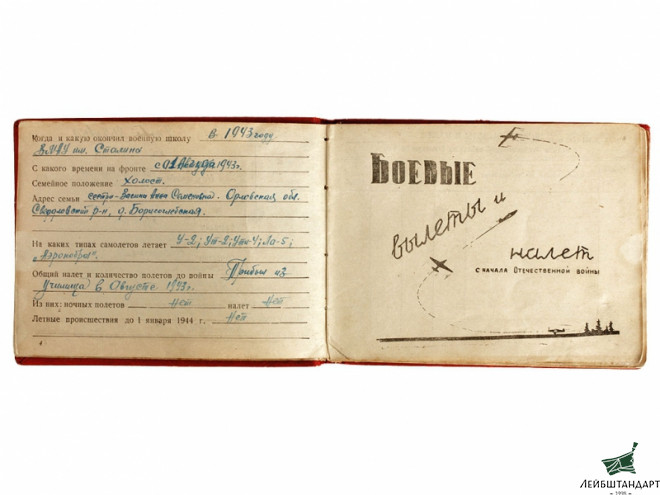 Когда и какую окончил военную школу в 1943 году
им. Сталина
С какого времени на фронте с 1943 г.
Семейное положение Холост.
Адрес семьи сестра - Орловская обл.
Свердловский р-н, д.
На каких типах самолетов летает У-2; Ут-2; Ути-4; Ла-5;
„Аэрокобра".
Общий налет и количество полетов до войны Прибыл из
училища в Августе 1943 г.
Из них: ночных полетов Нет налет Нет
Летные происшествия до 1 января 1944 г. Нет
4
БОЕВЫЕ
вылеты и
налет
С НАЧАЛА ОТЕЧЕСТВЕННОЙ ВОЙНЫ
ЛЕЙБШТАНДАРТ